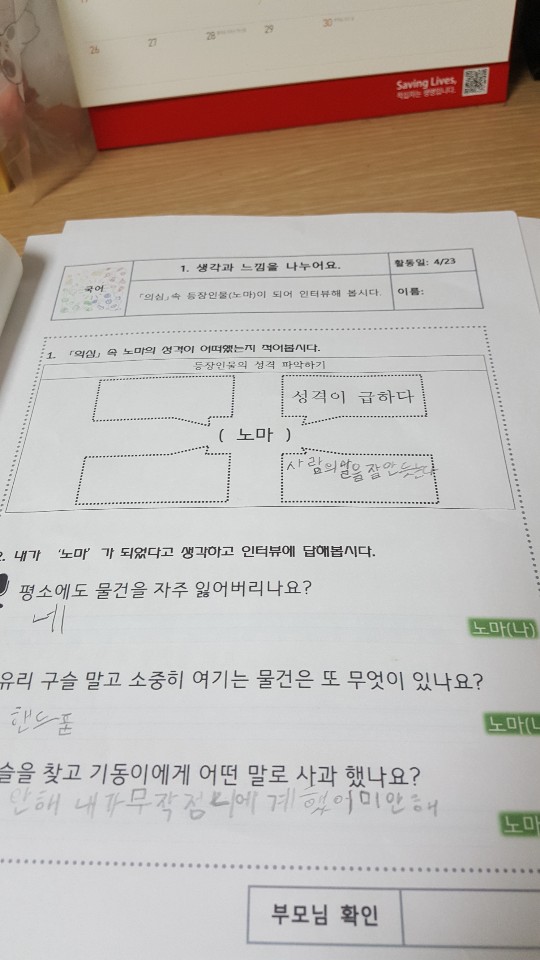 26 27 28 29 30
Saving Lives,
적십자는 생명입니다.
국어
1. 생각과 느낌을 나누어요.
활동일: 4/23
「의심」속 등장인물(노마)이 되어 인터뷰해 봅시다.
이름:
1. 「의심」 속 노마의 성격이 어떠했는지 적어봅시다.
등장인물의 성격 파악하기
성격이 급하다
( 노마 )
사람의말을잘안듯는다
2. 내가 '노마' 가 되었다고 생각하고 인터뷰에 답해봅시다.
평소에도 물건을 자주 잃어버리나요?
네
노마(나)
유리 구슬 말고 소중히 여기는 물건은 또 무엇이 있나요?
핸드폰
노마(나
슬을 찾고 기동이에게 어떤 말로 사과 했나요?
안해 내가무작정 했어미안해
노마
부모님 확인